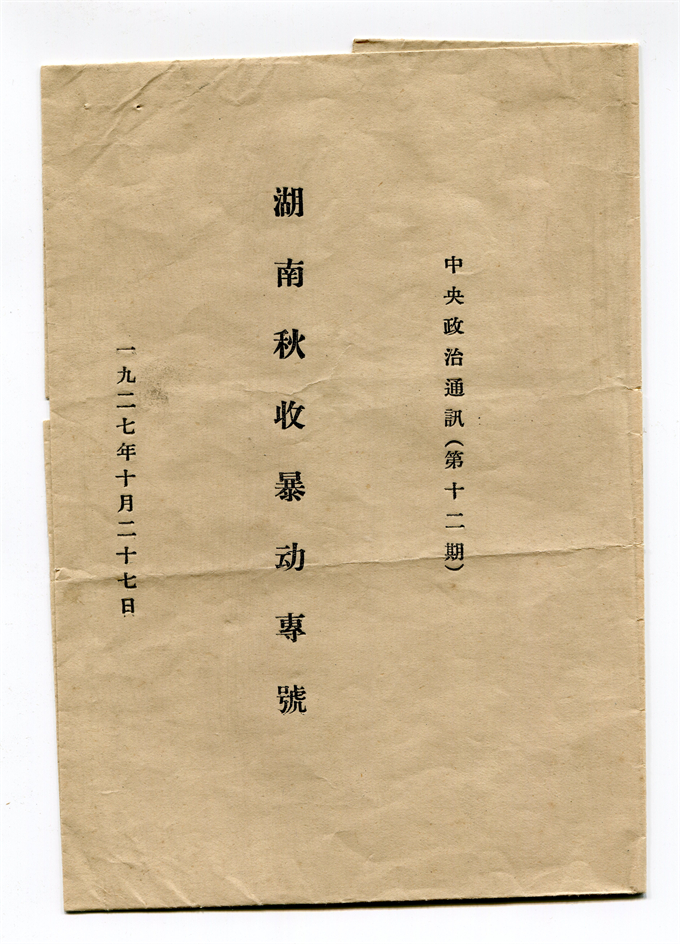 中央政治通訊(第十二期)
湖南秋收暴动專號
一九二七年十月二十七日